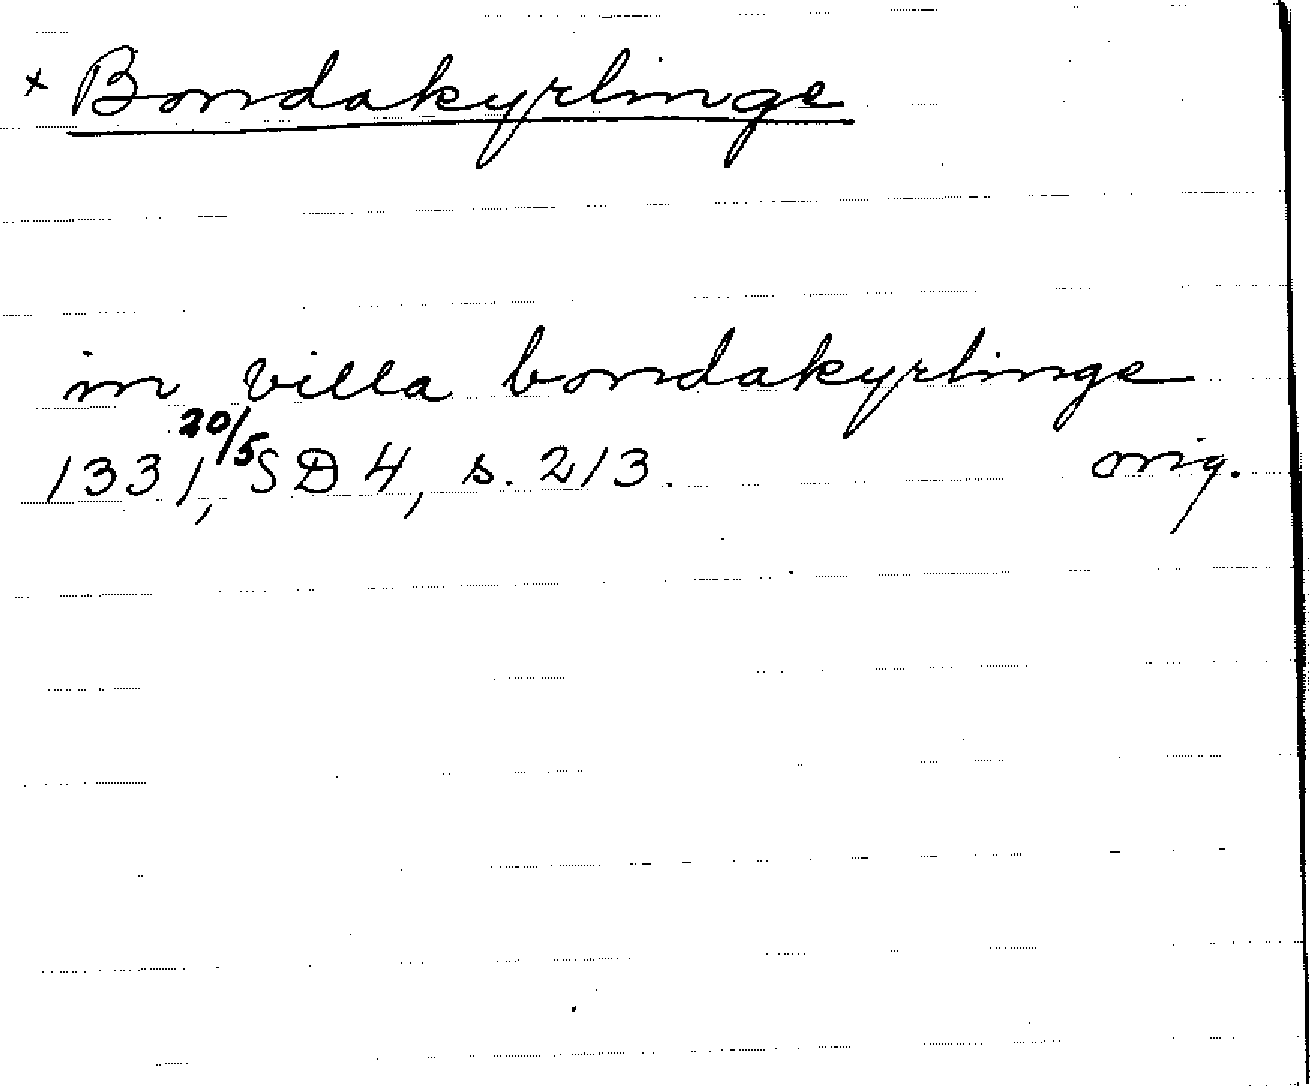 x Bondakyrlinge
in villa bondakyrlinge
1331 20/5, SD 4, s. 213. orig.